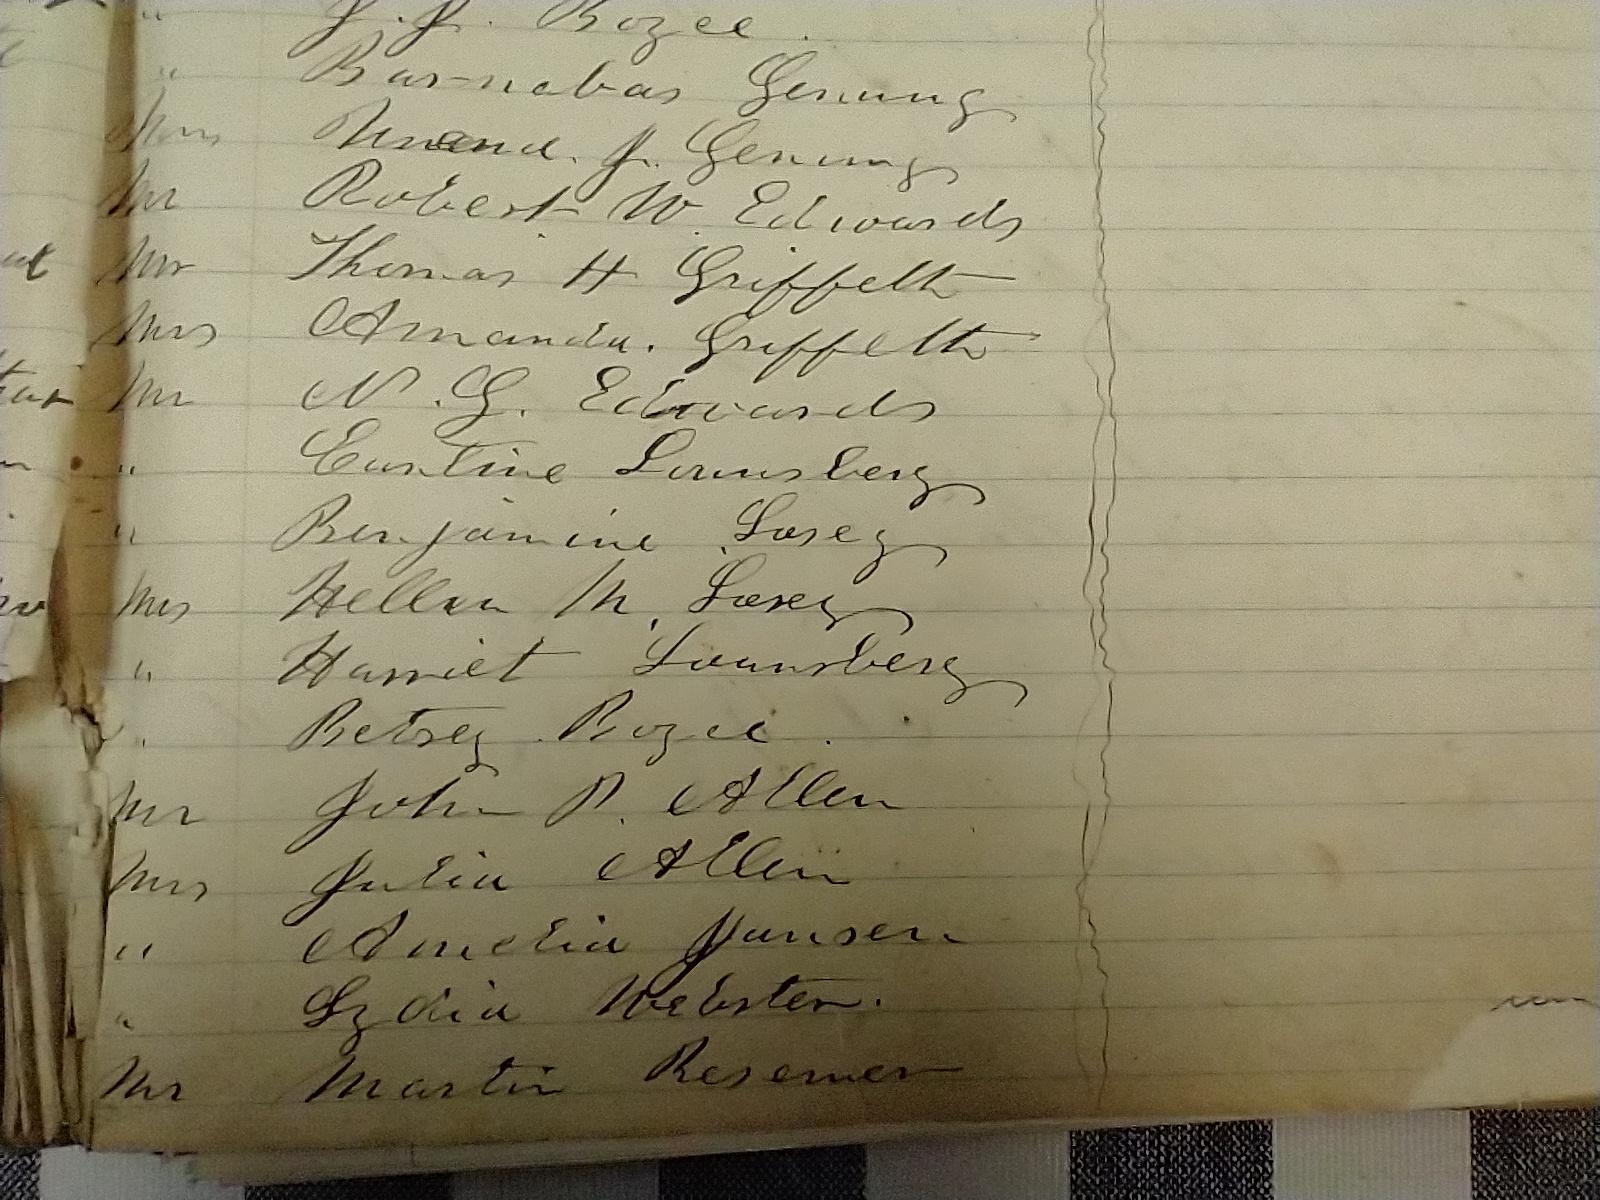 " J. J. Bozee.
" Barnabas Genung
Mrs J. Genung
Mr Robert W. Edwards
Mr Thomas H Griffeth
Mrs Amanda. Griffeth
Mr N. G. Edwards
" Cantine Lounsbery
" Benjamine Losey
Mrs Hellen M. Losey
" Harriet Lounsbery
" Betsey Bozee.
Mr John P. Allen
Mrs Julia Allen
" Amelia Jansen
" Lydia Webster.
Mr Martin